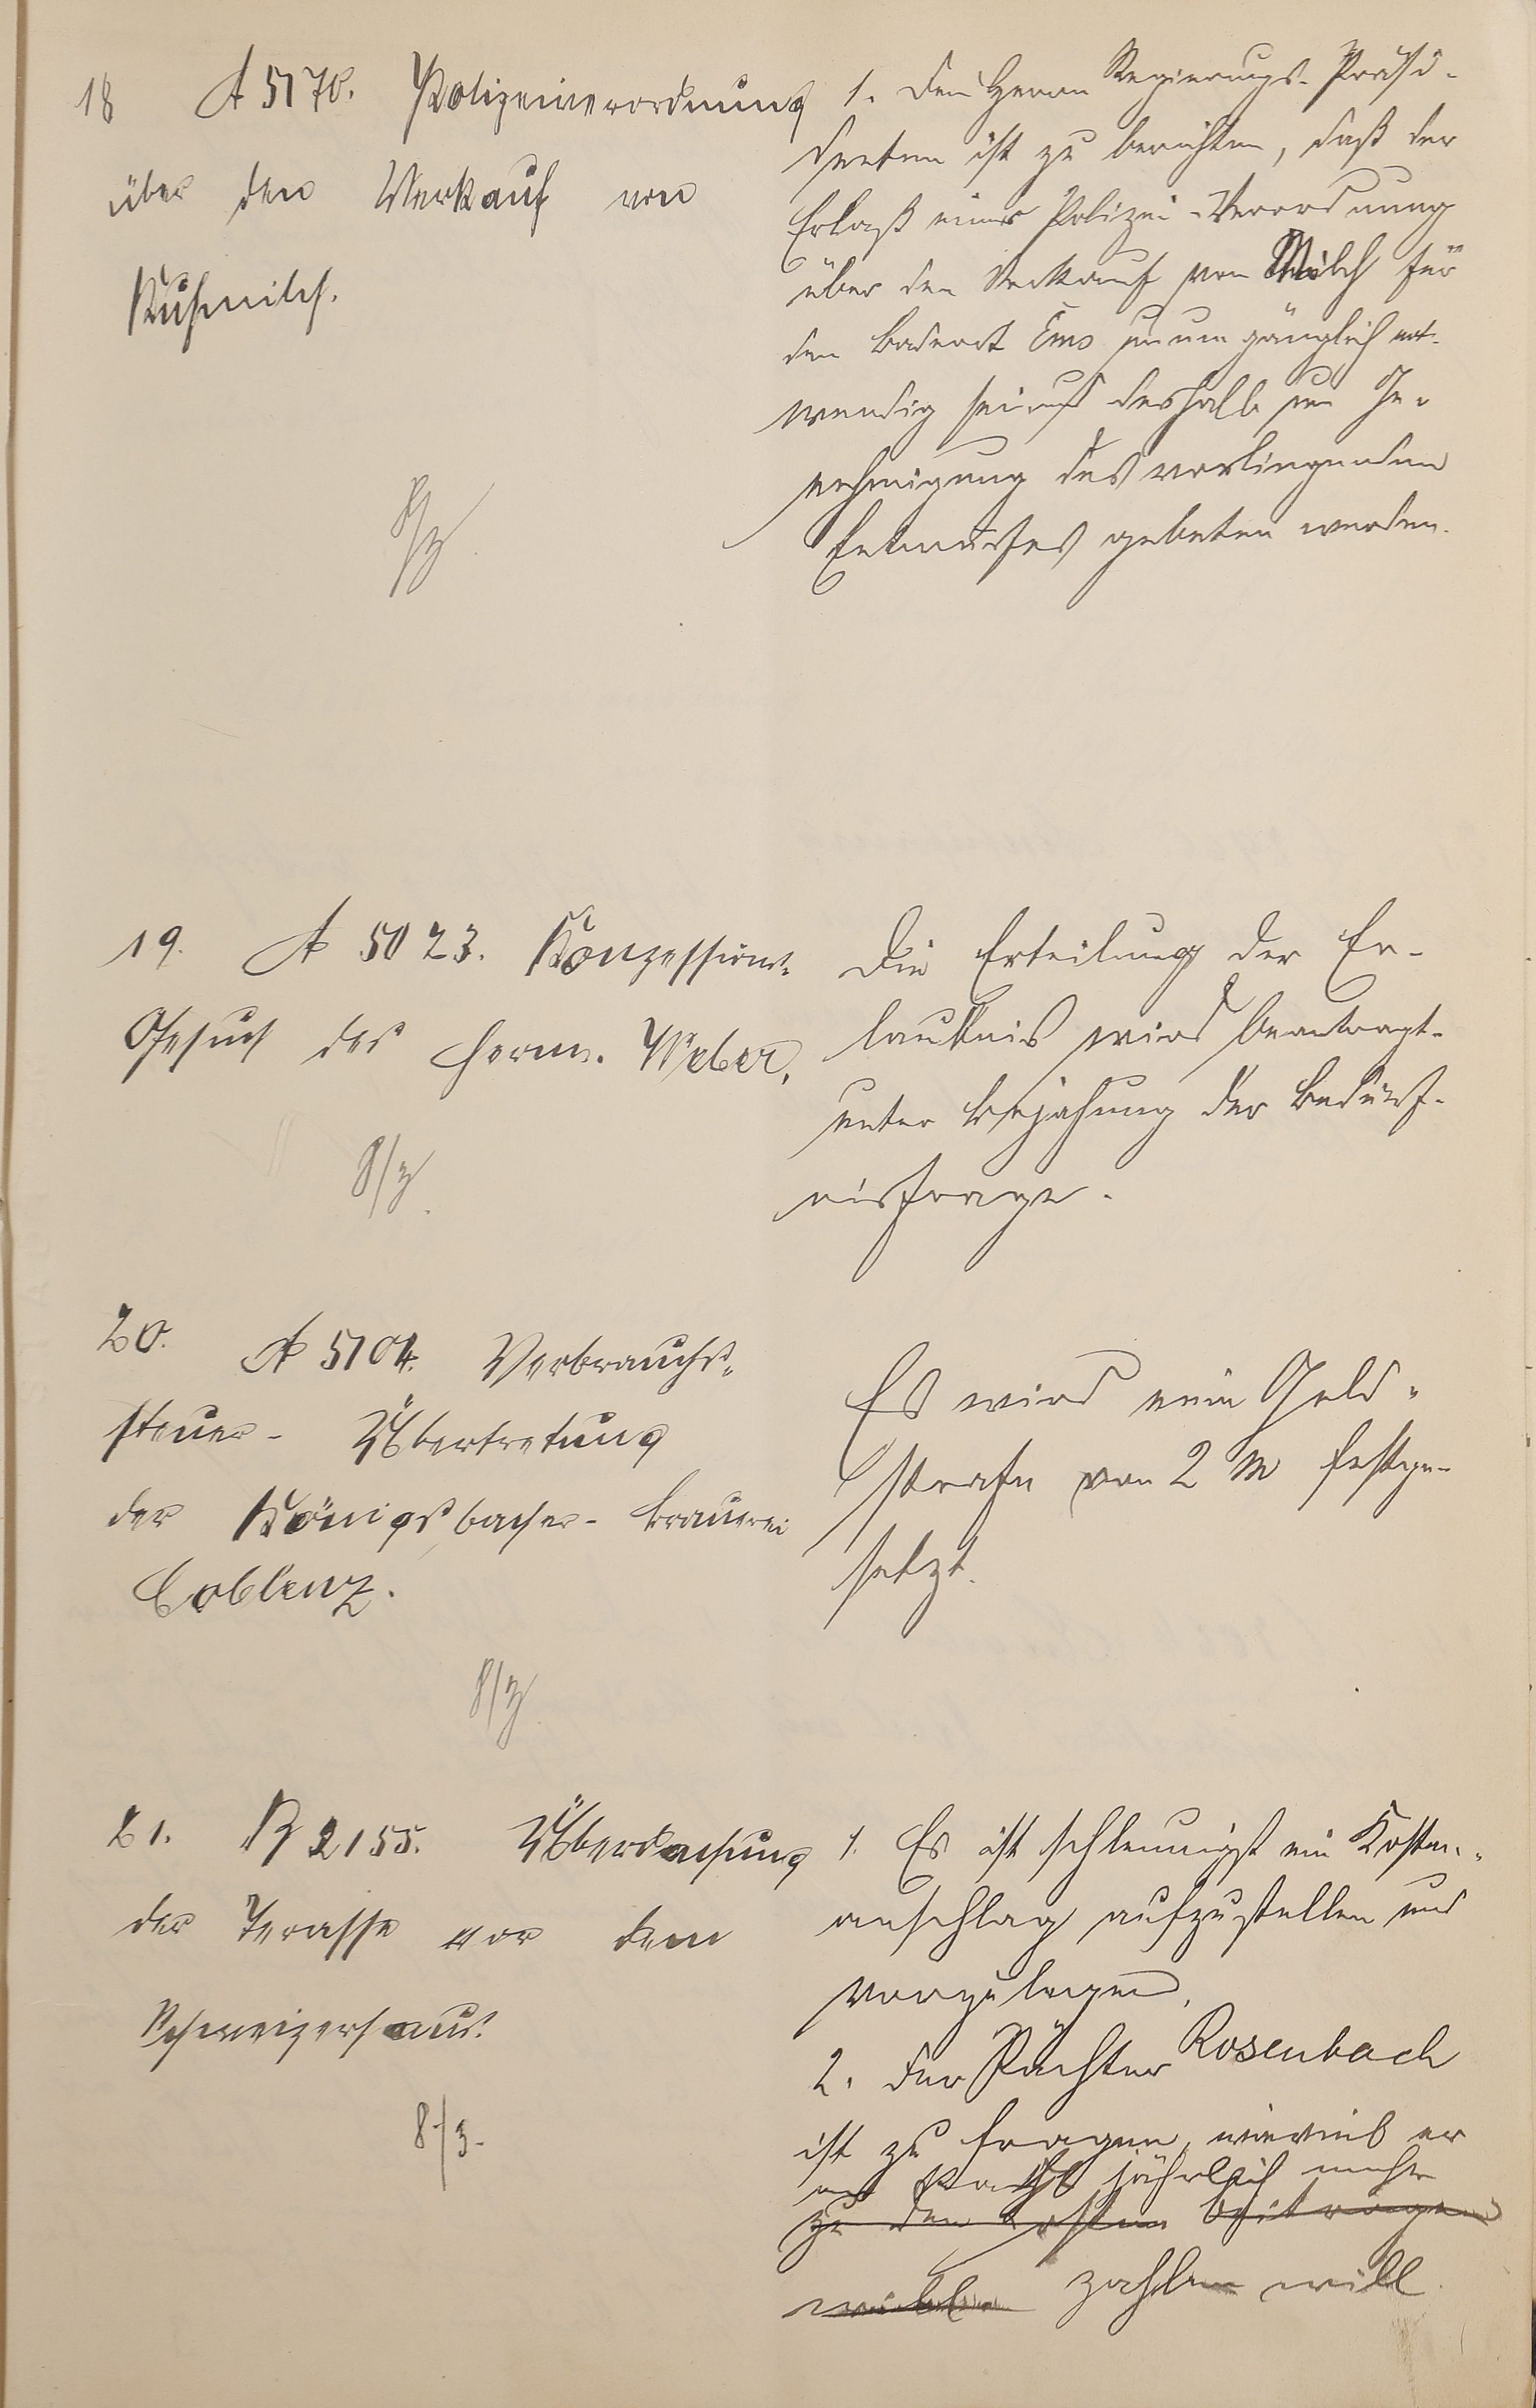 18 A 5170. Polizeiverordnung
über den Verkauf von
Kuhmilch.
8/3.
1. Dem Herrn Regierungs-Präsi-
denten ist zu berichten, daß der
Erlaß einer Polizei-Verordnung
über den Verkauf von Milch für
den Badeort Ems unumgänglich not-
wendig sei und deshalb um Ge-
nehmigung des vorliegenden
Entwurfes gebeten werden.
19. A 5023. Konzessions-
Gesuch des Herm. Weber.
8/3.
Die Erteilung der Er-
laubnis wird beantragt
unter Bejahung der Bedürf-
nisfrage.
20. A 5104. Verbrauchs-
steuer- Übertretung
der Königsbacher- Brauerei
Coblenz.
8/3.
Es wird eine Geld-
strafe von 2 M festge-
setzt.
21. B 2155. Überdachung
der Terasse vor dem
Schweizerhaus.
8/3.
1. Es ist schleunigst ein Kosten-
anschlag aufzustellen und
vorzulegen.
2. Der Pächter Rosenbach
ist zu fragen, wieviel er
an Pacht jährlich mehr
zu den Kosten beitragen
will zahlen will.